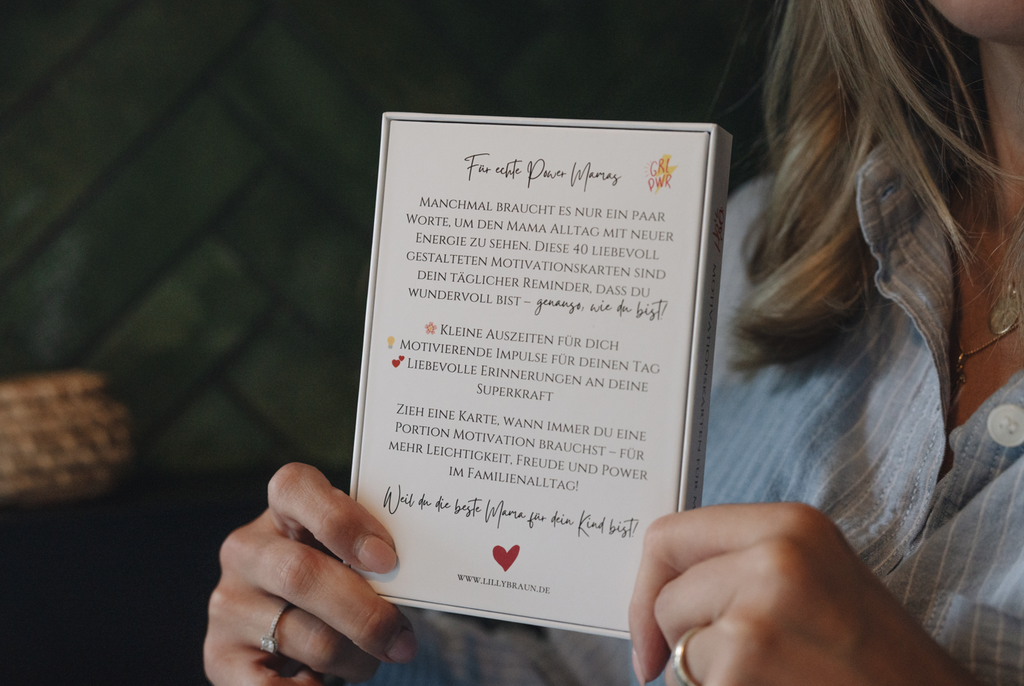 Für echte Power Mamas
GRL
PWR
MANCHMAL BRAUCHT ES NUR EIN PAAR
WORTE, UM DEN MAMA ALLTAG MIT NEUER
ENERGIE ZU SEHEN. DIESE 40 LIEBEVOLL
GESTALTETEN MOTIVATIONSKARTEN SIND
DEIN TÄGLICHER REMINDER, DASS DU
WUNDERVOLL BIST – genauso, wie du bist!
KLEINE AUSZEITEN FÜR DICH
MOTIVIERENDE IMPULSE FÜR DEINEN TAG
LIEBEVOLLE ERINNERUNGEN AN DEINE
SUPERKRAFT
ZIEH EINE KARTE, WANN IMMER DU EINE
PORTION MOTIVATION BRAUCHST – FÜR
MEHR LEICHTIGKEIT, FREUDE UND POWER
IM FAMILIENALLTAG!
Weil du die beste Mama für dein Kind bist!
WWW.LILLYBRAUN.DE